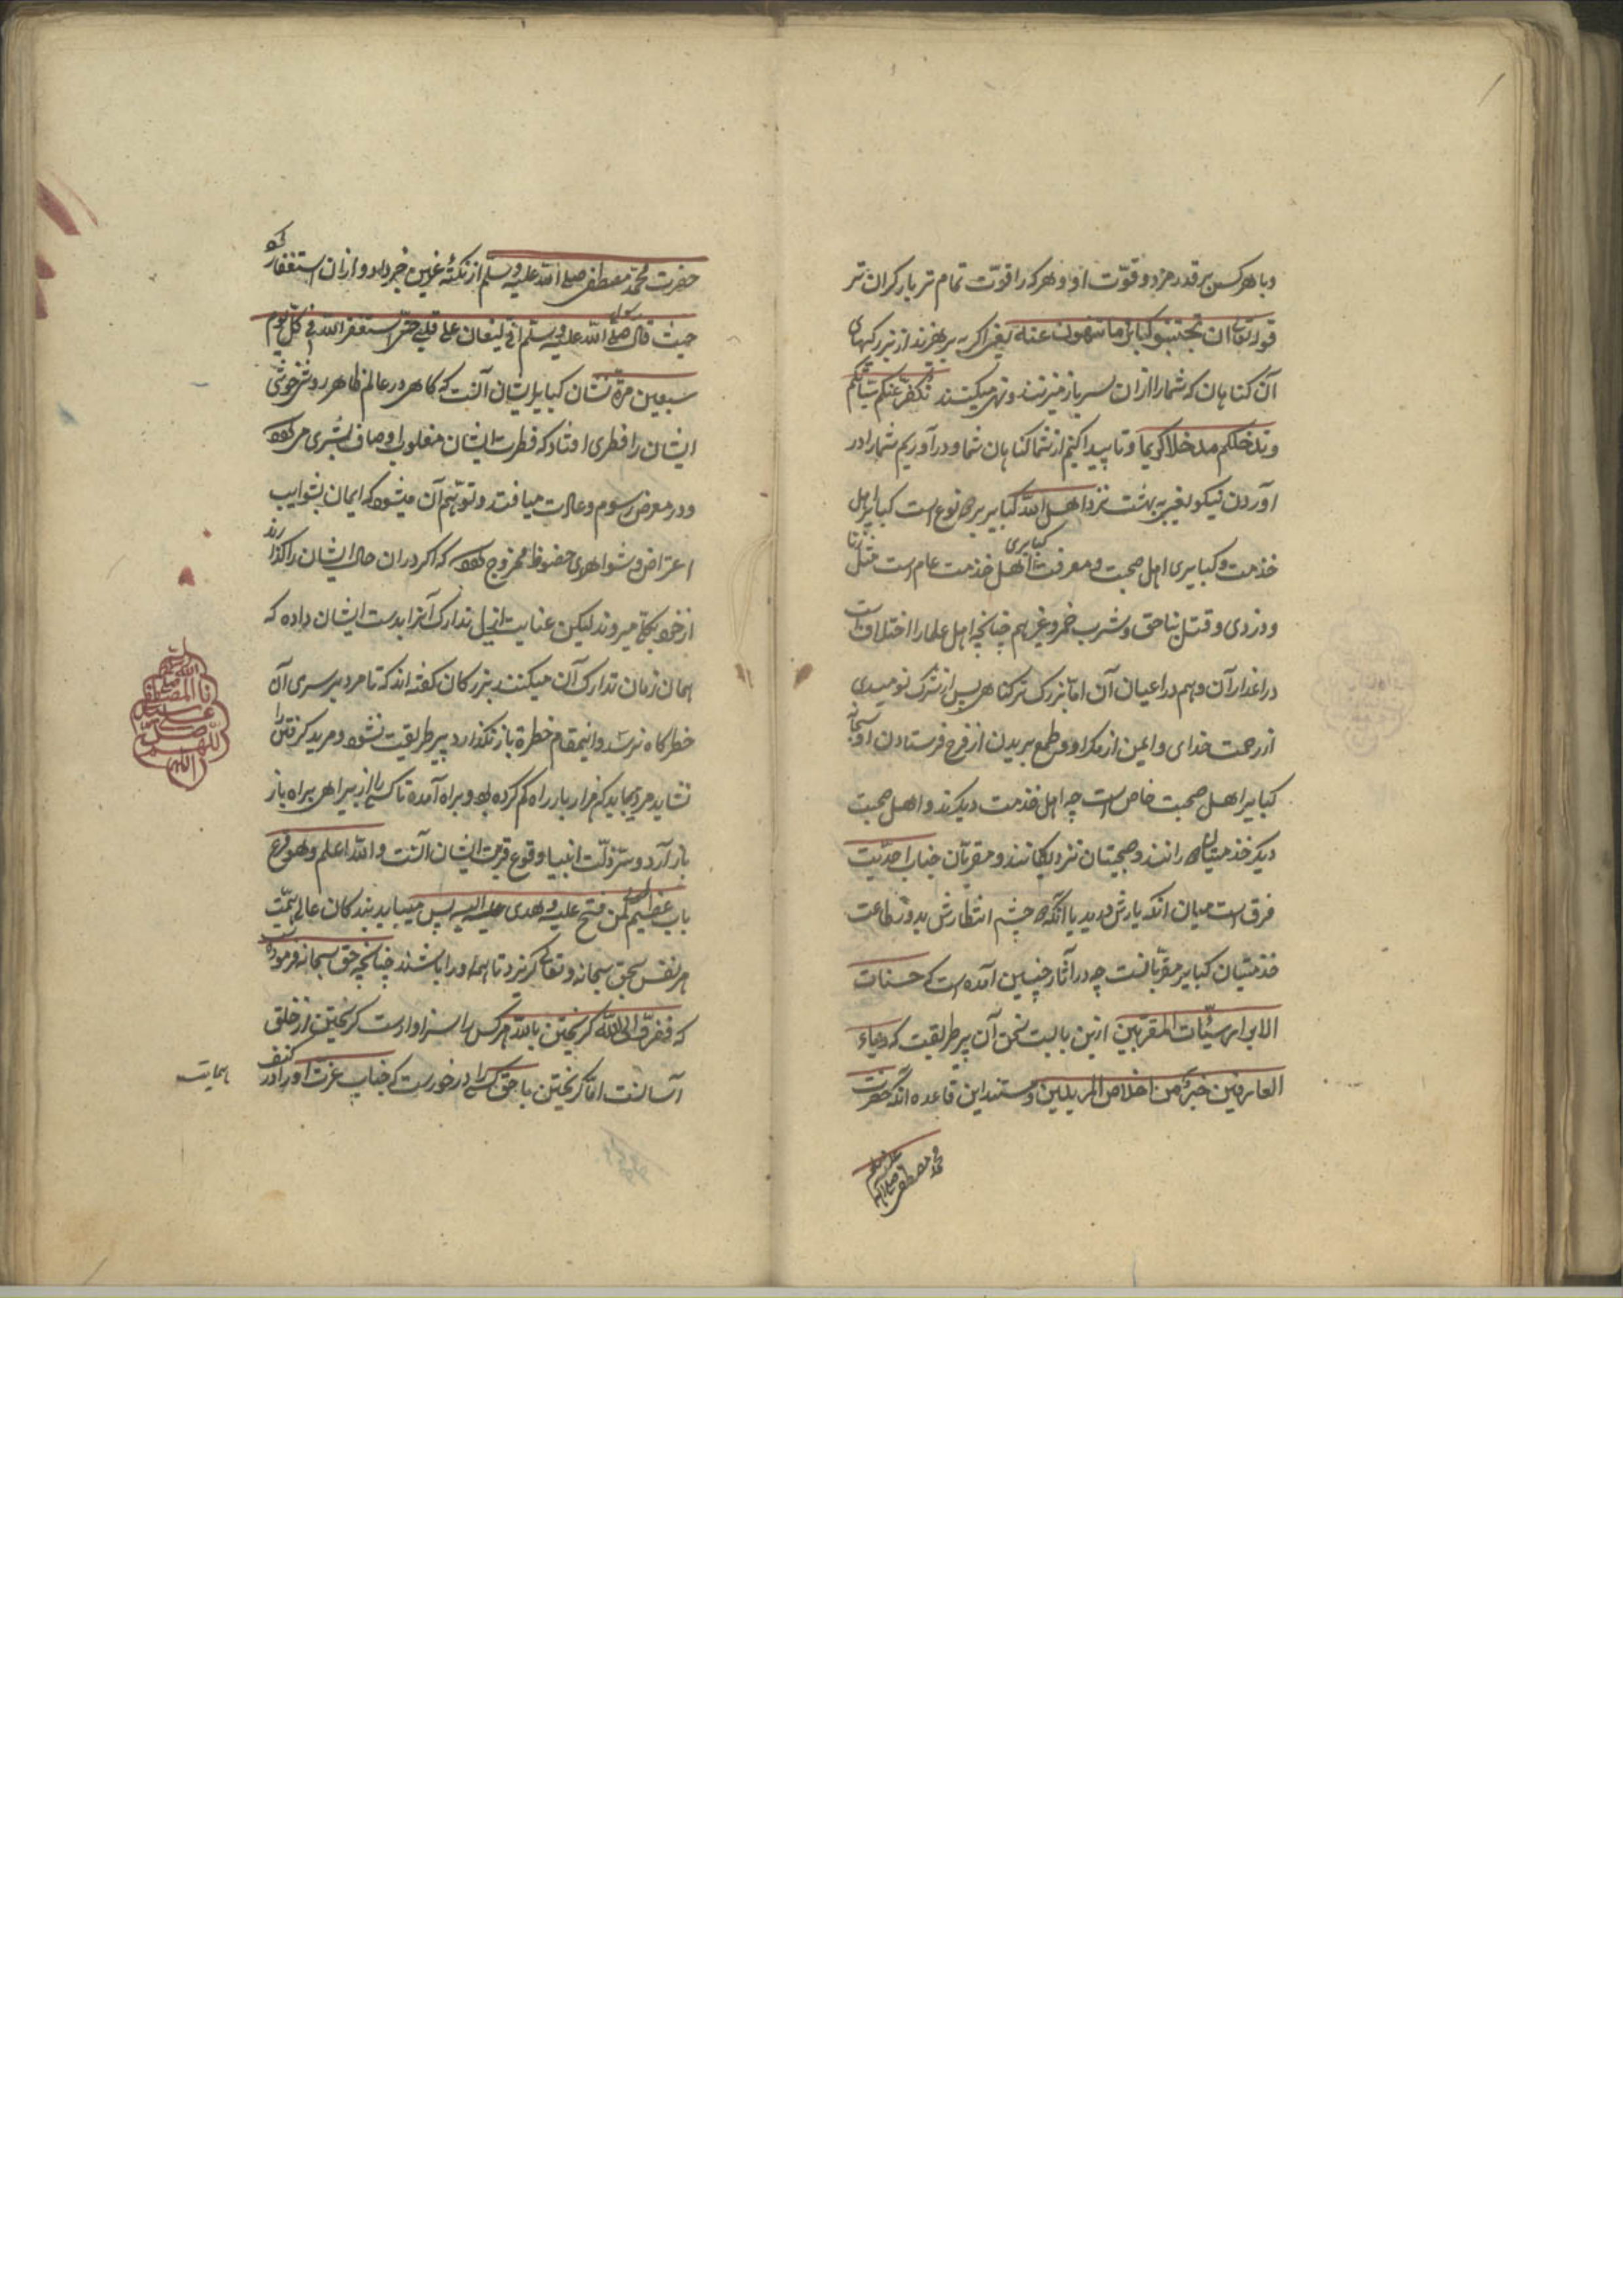 وباهر کس بر قدر مزد و قوّت او و هر کرا قوّت تمام تر بار کران تر
قوله تعالی ان تجتنبوا کبائر ما تنهون عنه یعنی اکر بپرهیزند از بزرکهای
آن کناهان که شما را از ان بازمیزنند و نهی میکنند نکفر عنکم سیاتکم
وندخلکم مدخلا کریما و ناپیدا کنیم از شما کناهان شما و درآوریم شما را در
آوردن نیکو یعنی بهشت نزد اهل الله کبایر بر نوع است کبایر اهل
خدمت و کبایری اهل صحبت و معرفت کبایری اهل خدمت عام است مثل زنا
و دزدی و قتل بناحق و شرب خمر و غیرهم چنانچه اهل علما را اختلاف است
در اعداد آن و هم در اعیان آن اما بزرک تر کناهی پس از شرک نومیدی
از رحمت خدای و ایمن از مکر او و طمع بریدن از فرج فرستادن او سبحانه
کبایر اهل صحبت خاص است چه اهل خدمت دیکرند و اهل صحبت
دیکر خدمتیان رانند و صحبتیان نزدیکانند و مقربان جناب احدیت
فرق است میان انکه یارش در بر یا آنکه چشم انتظارش بر در طاعت
خدمتیان کبایر مقربانست چه در آثار چنین آمده است که حسنات
الابرار سیّئات المقربین ازین بابست سخن آن پیر طریقت که ریاء
العارفین خیر من اخلاص المریدین و مستند این قاعده آنکه حضرت
محمد مصطفی صلی الله علیه وسلم
حضرت محمد مصطفی صلی الله علیه وسلم از نکتهٔ غین خبر داد و از ان استغفار کرد
حیث قال رسول صلی الله علیه وسلم انه لیغان علی قلبی حتی استغفر الله فی کل یوم
سبعین مرة نشان کبایر ایشان آنست که کاهی در عالم ظاهر روش خوشی
ایشان را فطری افتاد که فطرت ایشان مغلوب اوصاف بشری میکردد
و در معرض رسوم و عادت میافتد و توهّم آن میشود که ایمان بشوایب
اعتراض و شواهدی حضوظ ممزوج کردد که اکر در ان حال ایشان را کذارند
از خود بکلی میروند لیکن عنایت ازلی تدارک آنرا بدست ایشان داده که
همان زمان تدارک آن میکنند بزرکان کفته اند که تا مرد بر سری آن
خطرکاه نرسد و انیمقام خطرة باز نکذارد پیر طریقت نشود و مرید کرفتن را
نشاید مردی باید که هزار بار راه کم کرده بود و براه آمده تا کسی را از بیراهی براه باز
باز آرد و سرّ زلّت انبیا و قوع قربت ایشان آنست والله اعلم وهو فرع
باب عظیم لمن فتح علیه و هدی الیه پس میباید بندکان عالی همّت
هر نفس بحق سبحانه و تعالی کریزد تا همه او را باشند چنانچه حق سبحانه فرموده است
که ففرّوا الی الله کریختن بالله هر کس را سزاوار است کریختن از خلق
آسانست امّا کریختن با حق کسی را در خورست که جناب عزت او را در کنف
حمایت